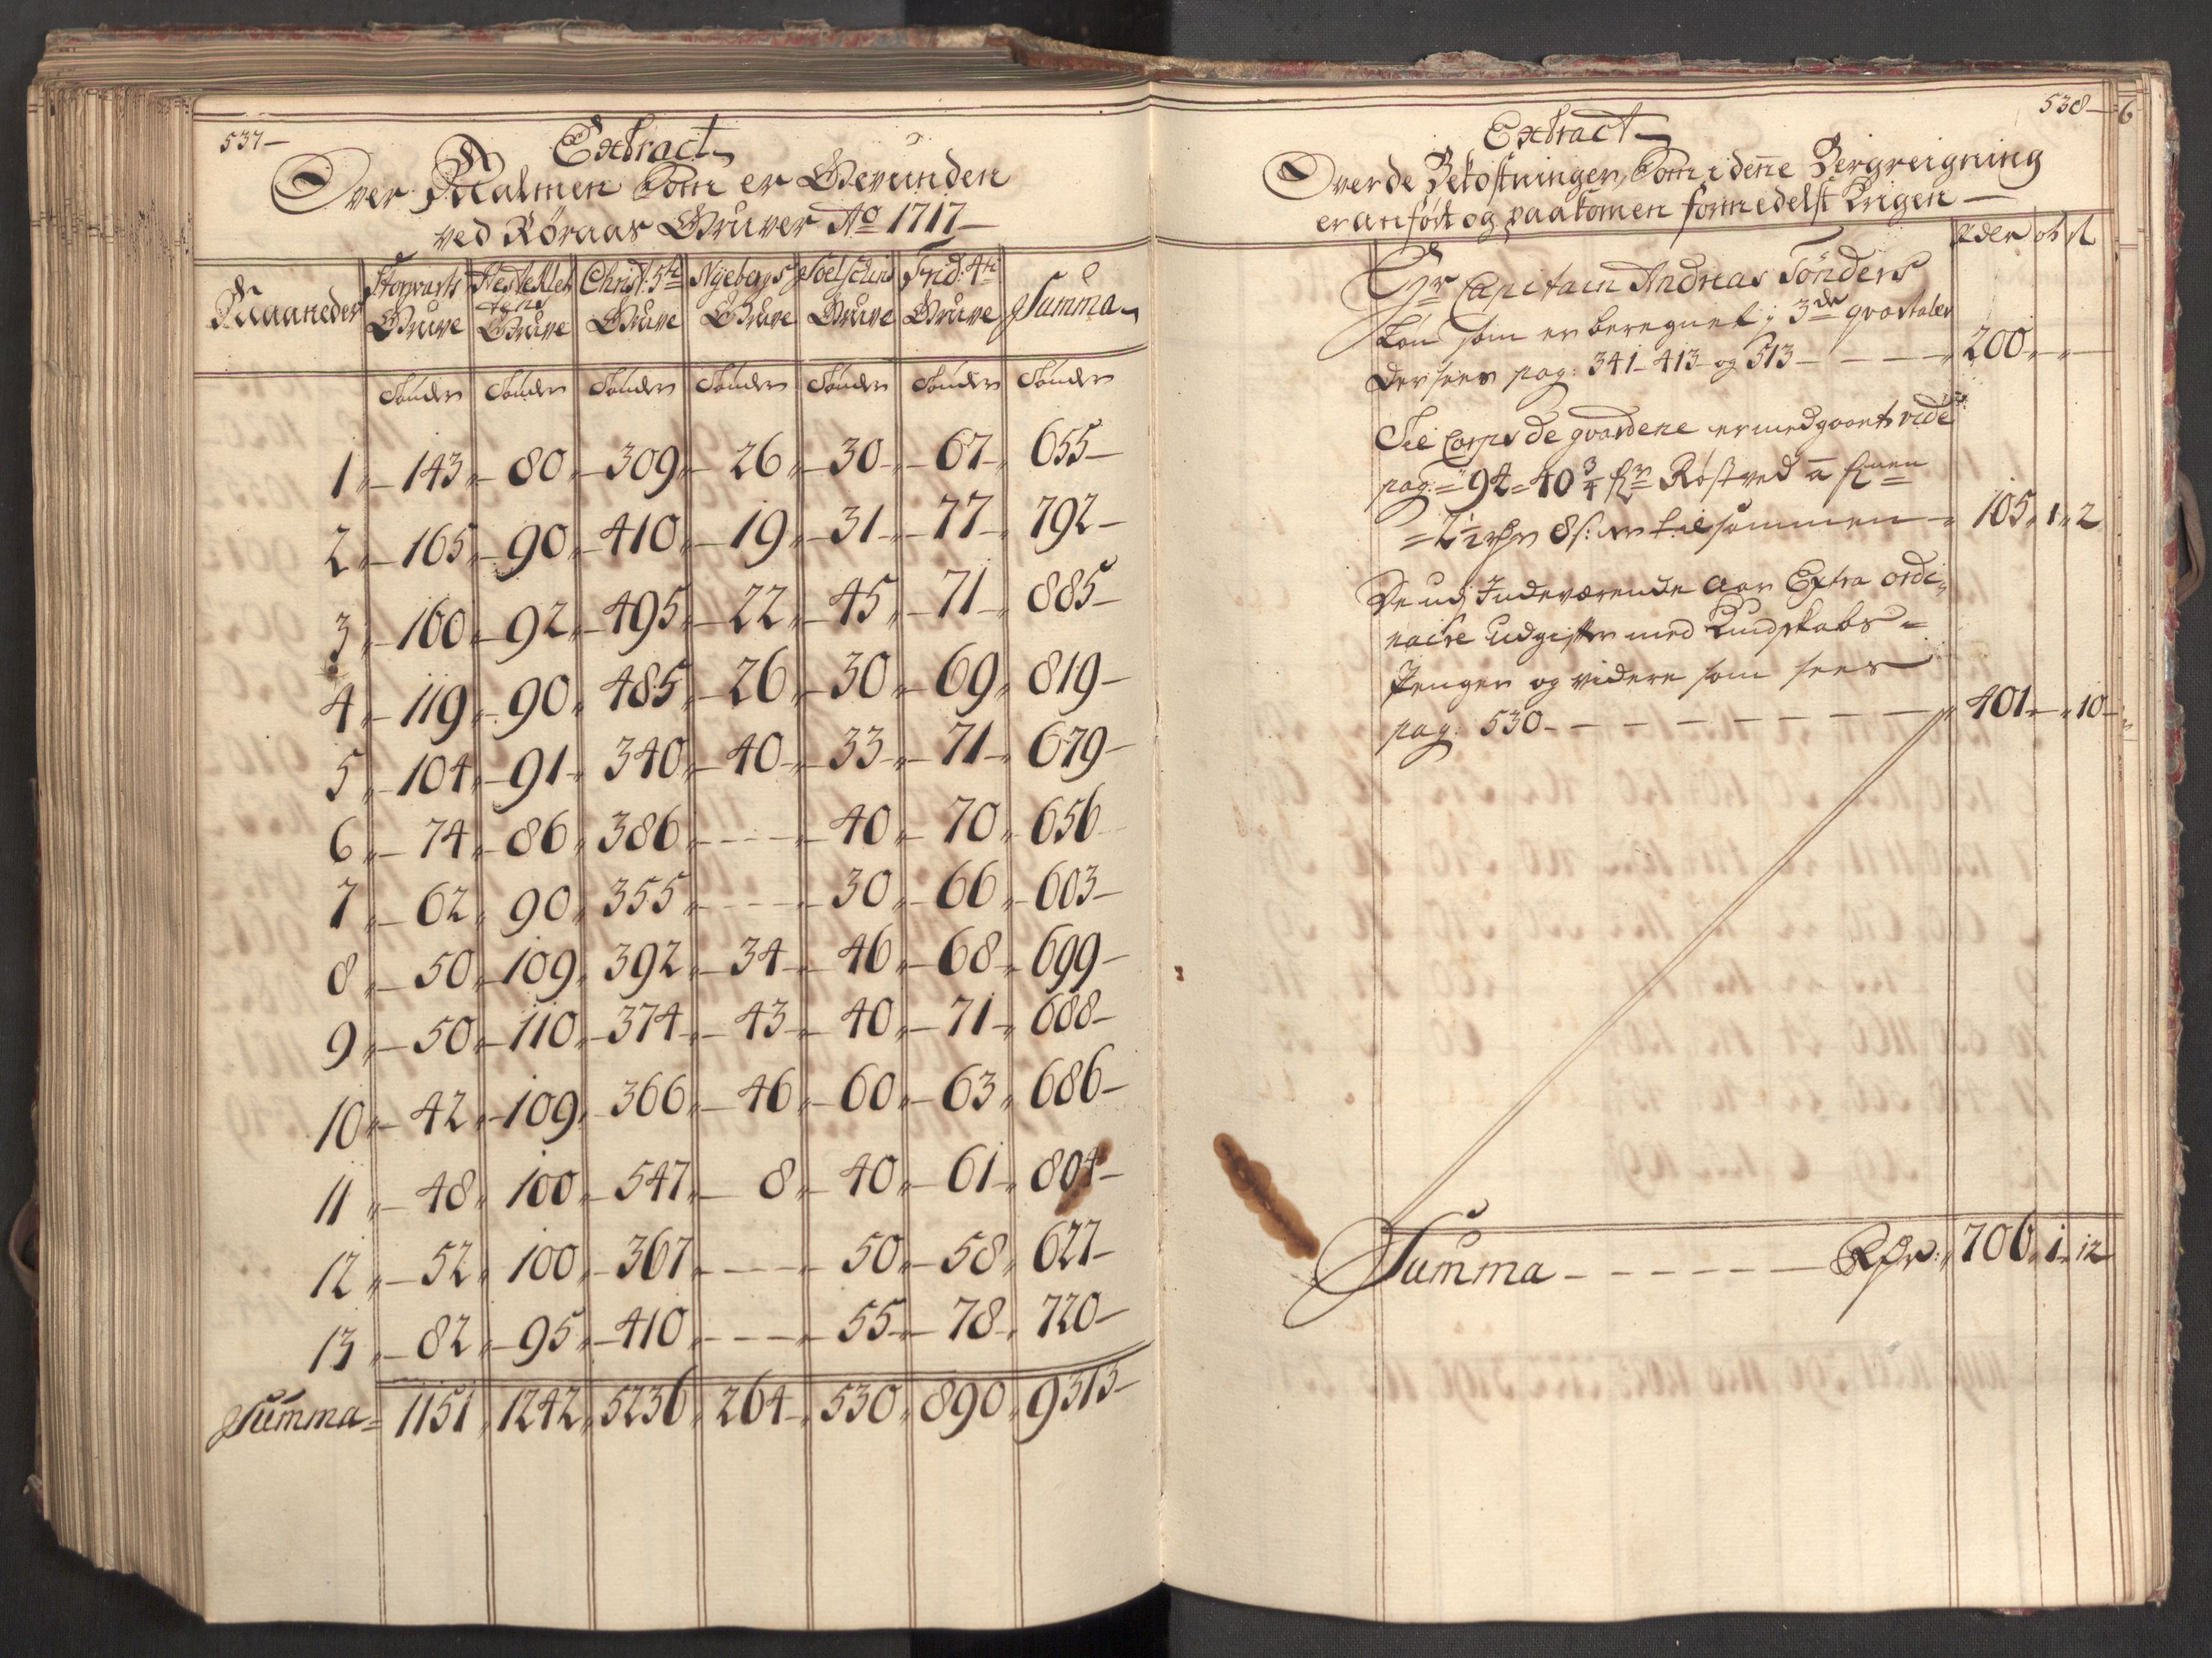 537
Extract
Over Malmen Som er Gevunden
ved Röraas Gruver Ao 1717
Maaneder Storwarts Gruve Hesteklettens Gruve Christ: 5te Gruve Nyebergs Gruve Gruve Frid: 4te Gruve Summa
Tønder Tønder Tønder Tønder Tønder Tønder Tønder
1 143 80 309 26 30 67 655
2 165 90 410 19 31 77 792
3 160 92 495 22 45 71 885
4 119 90 485 26 30 69 819
5 104 91 340 40 33 71 679
6 74 86 386 - - - 40 70 656
7 62 90 355 - - - 30 66 603
8 50 109 392 34 46 68 699
9 50 110 374 43 40 71 688
10 42 109 366 46 60 63 686
11 48 100 547 8 40 61 804
12 52 100 367 - - - 50 58 627
13 82 95 410 - - - 55 78 720
Summa 1151 1242 5236 264 530 890 9313
538
6
Extract
Over de Bekostninger, Som i denne Bergreigning
er anfört og paakomen formedelst Krigen
Rdr ort s
Hr Capitain Andreas Tönders
Løn som er beregnet i 3de qvartaler
der sees pag: 341 - 413 og 513 - - - 200
Til Corps de guardene er medgaaet vide
pag: 92 = 40 3/4 Røstved a
= 2 1/2 8 s: er tilsammen 105 1 2
De udj Indeværende Aar Extra ordi-
naire Udgifter med Kundskabs-
Penger og videre som sees
pag: 530 - - - - - - - 401 - 10
Summa - - - - - - Rdr: 706 1 12